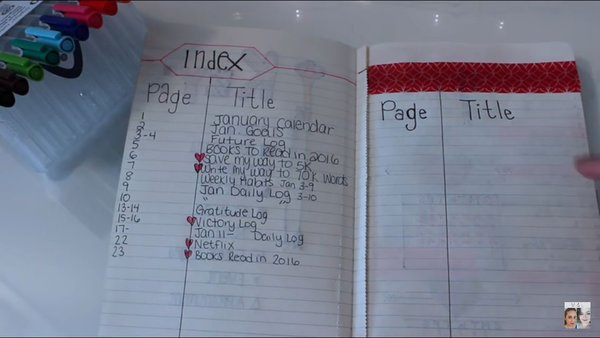 Index
Page Title
1 January Calendar
2 Jan. Goals
3-4 Future Log
5 BOOKS TO Read in 2016
6 Save my way to 5K
7 Write my way to 70K Words
8 Weekly Habits Jan 3-9
9 Jan Daily Log 3-10
10 " "
13-14 Gratitude Log
15-16 Victory Log
17- Jan 11- Daily Log
22 Netflix
23 Books Read in 2016
Page Title